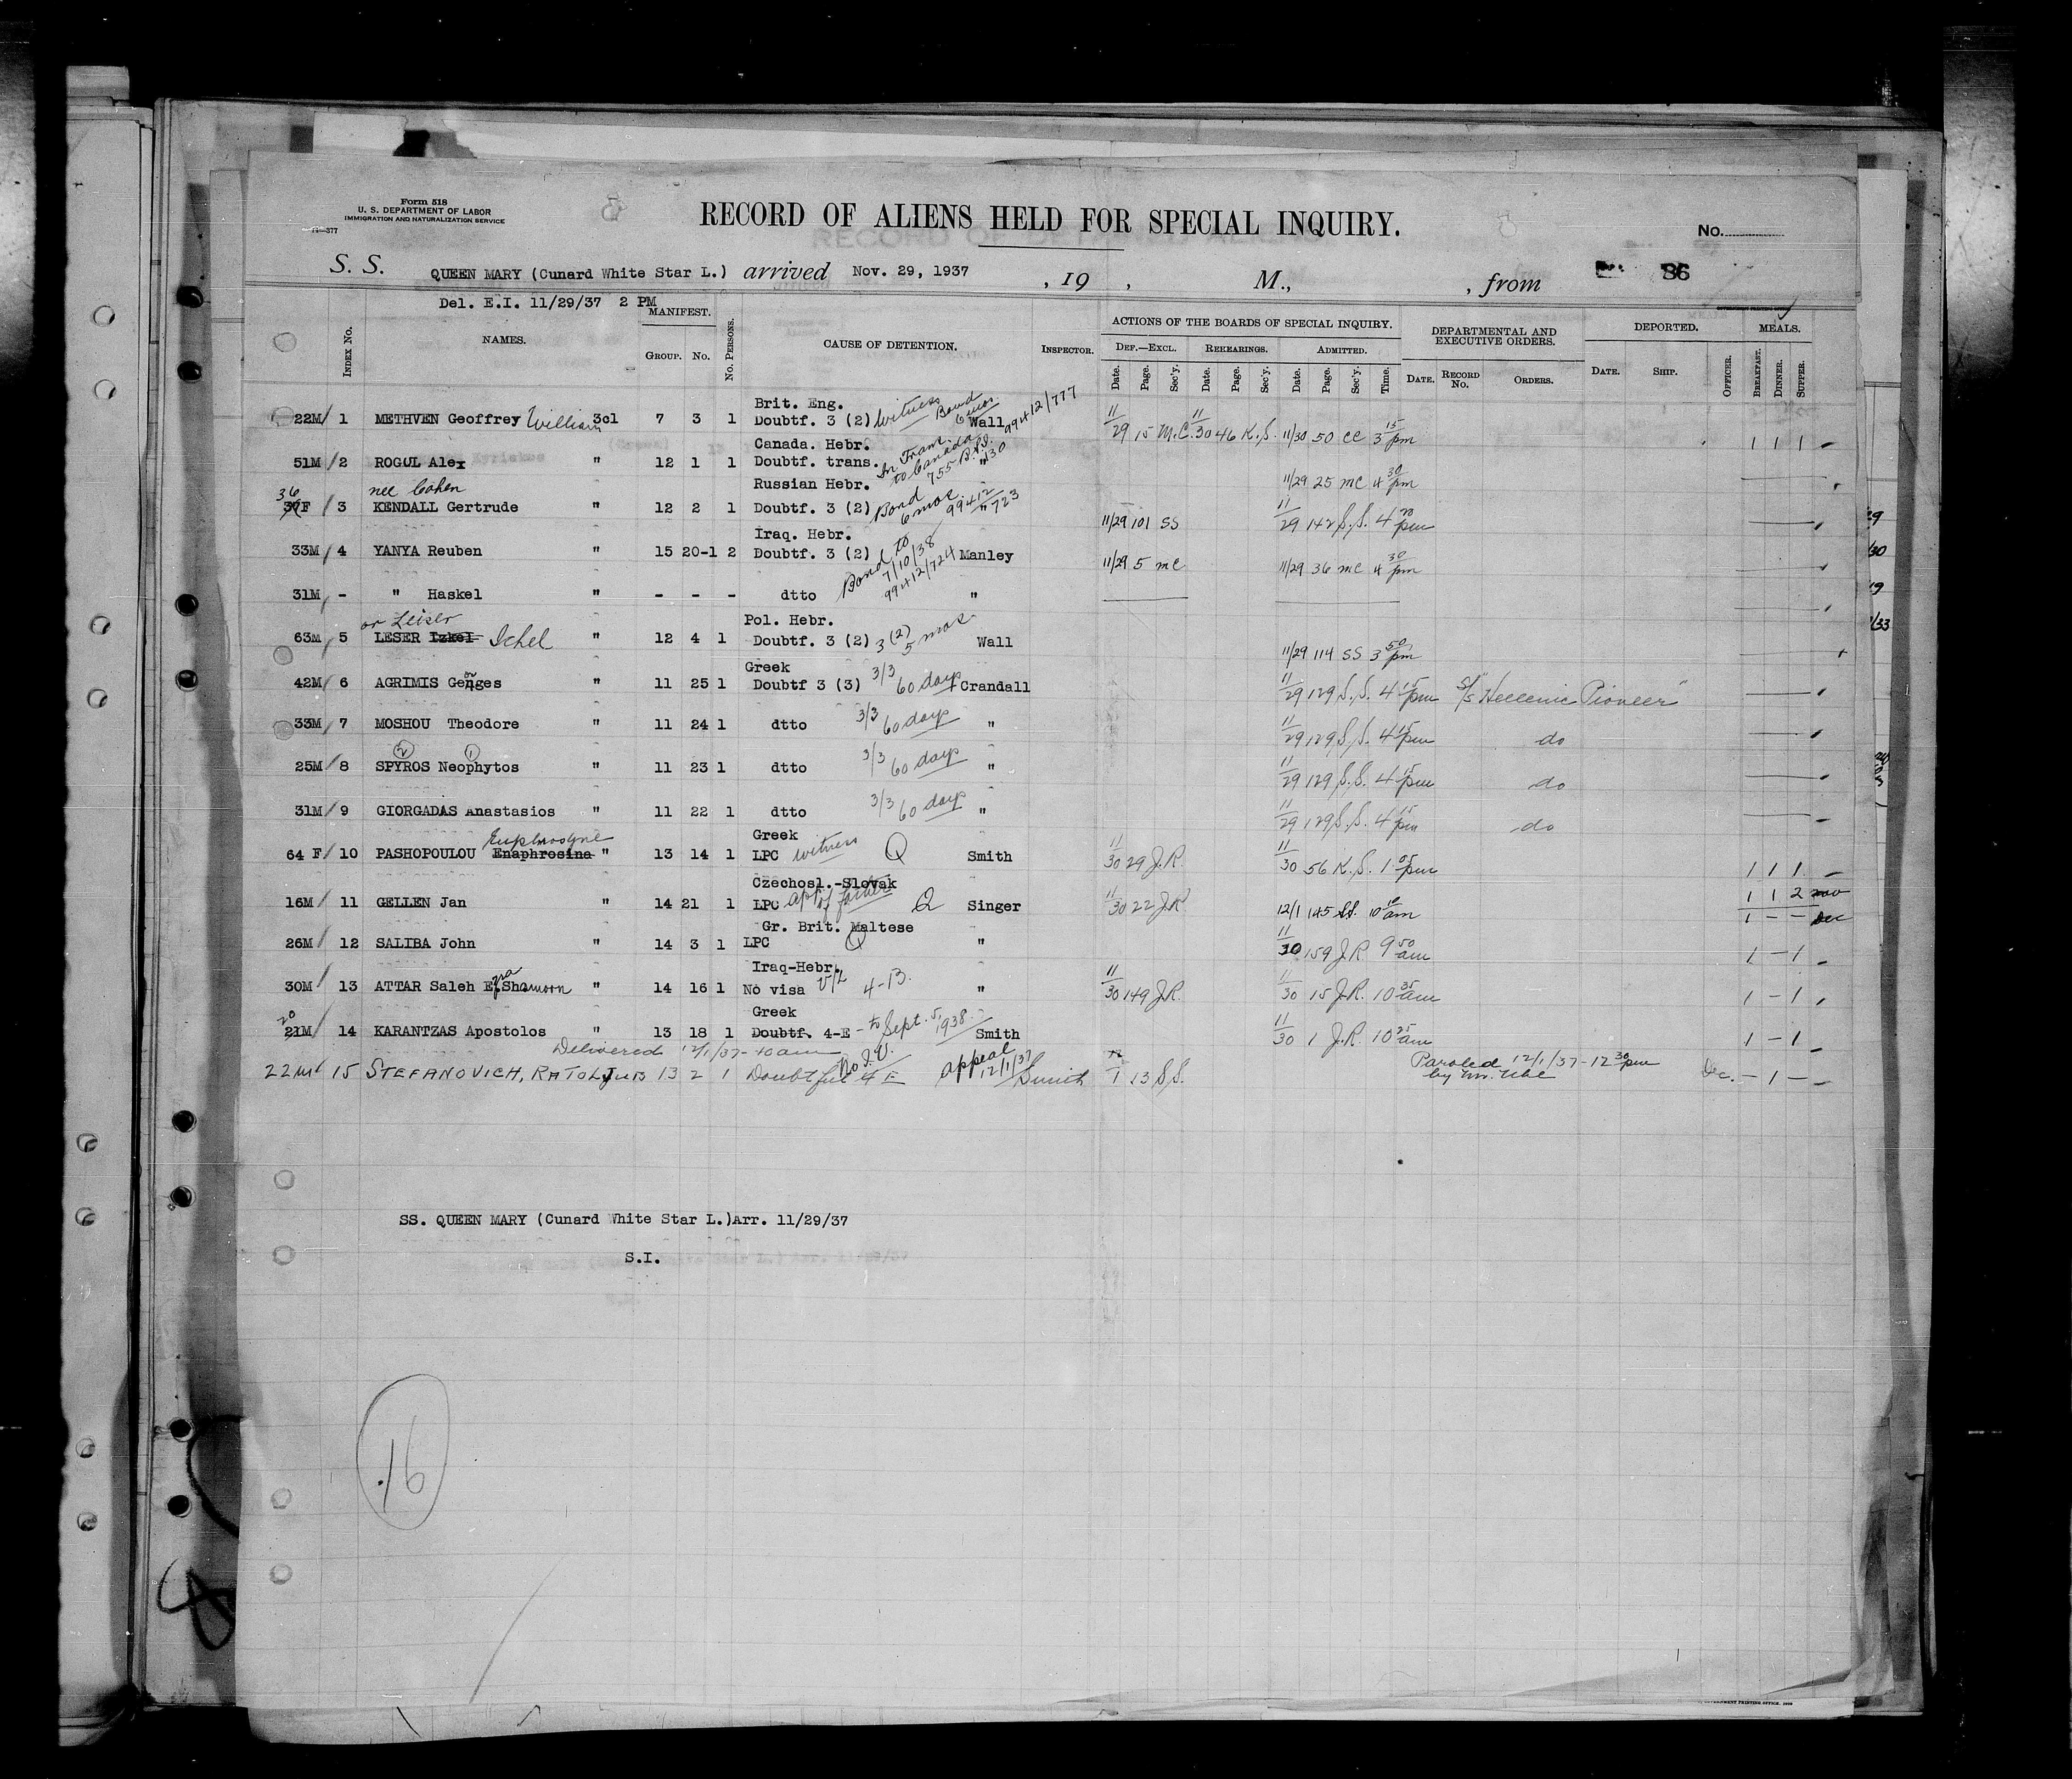 Form 518
U. S. DEPARTMENT OF LABOR
IMMIGRATION AND NATURALIZATION SERVICE
RECORD OF ALIENS HELD FOR SPECIAL INQUIRY.
No.
S. S. QUEEN MARY (Cunard White Star L.) arrived Nov. 29, 1937 , 19 , M., , from 86
Del. E.I. 11/29/37 2 PM
INDEX No. NAMES. MANIFEST. GROUP. No. No. PERSONS. CAUSE OF DETENTION. INSPECTOR. ACTIONS OF THE BOARDS OF SPECIAL INQUIRY. DEPARTMENTAL AND EXECUTIVE ORDERS. DEPORTED. MEALS.
DEF.—EXCL. REHEARINGS. ADMITTED.
Date. Page. Sec'y. Date. Page. Sec'y. Date. Page. Sec'y. Time. DATE. RECORD No. ORDERS. DATE. SHIP. OFFICER. BREAKFAST. DINNER. SUPPER.
Brit. Eng.
22M/ 1 METHVEN Geoffrey William 3cl 7 3 1 Doubtf. 3 (2) Witness Bond 6 mos Wall 99412/777 11/29 15 M.C. 11/30 46 K.S. 11/30 50 CC 3 15 pm 1 1 1 -
Canada. Hebr.
51M/ 2 ROGUL Alex " 12 1 1 Doubtf. trans. In Tran. to Canada " 11/29 25 MC 4 30 pm
Russian Hebr.
nee Cohen
36 F / 3 KENDALL Gertrude " 12 2 1 Doubtf. 3 (2) Bond 6 mos. 99412/723 " 11/29 101 SS 11/29 142 S.S. 4 20 pm
Iraq. Hebr.
33M/ 4 YANYA Reuben " 15 20-1 2 Doubtf. 3 (2) Bond to 7/10/38 99412/724 Manley 11/29 5 MC 11/29 36 MC 4 30 pm
31M/ - " Haskel " - - - dtto "
or Leiser Pol. Hebr.
63M/ 5 LESER Izkel Ichel " 12 4 1 Doubtf. 3 (2) 3 (2) 5 mos. Wall 11/29 114 SS 3 50 pm
Greek
42M/ 6 AGRIMIS Genges " 11 25 1 Doubtf 3 (3) 3/3 60 days Crandall 11/29 129 S.S. 4 15 pm S/S "Hellenic Pioneer"
33M/ 7 MOSHOU Theodore " 11 24 1 dtto 3/3 60 days " 11/29 129 S.S. 4 15 pm do
2 1
25M/ 8 SPYROS Neophytos " 11 23 1 dtto 3/3 60 days " 11/29 129 S.S. 4 15 pm do
31M/ 9 GIORGADAS Anastasios " 11 22 1 dtto 3/3 60 days " 11/29 129 S.S. 4 15 pm do
Euphrosyne Greek
64 F/ 10 PASHOPOULOU Enaphrosina " 13 14 1 LPC witness Q Smith 11/30 29 J.R. 11/30 56 K.S. 1 05 pm 1 1 1 -
Czechosl.-Slovak
16M/ 11 GELLEN Jan " 14 21 1 LPC of father Q Singer 11/30 22 J.R 12/1 145 SS. 10 10 am 1 1 2 nov
1 - - Dec
Gr. Brit. Maltese
26M/ 12 SALIBA John " 14 3 1 LPC Q " 11/30 159 J.R 9 50 am 1 - 1 -
Iraq-Hebr.
30M/ 13 ATTAR Saleh Ezra Shamoon " 14 16 1 No visa 4-13. " 11/30 149 J.R. 11/30 15 J.R. 10 35 am 1 - 1
Greek
20
21M/ 14 KARANTZAS Apostolos " 13 18 1 Doubtf. 4-E - to Sept. 5, 1938. Smith 11/30 1 J.R. 10 25 am 1 - 1 -
Delivered 12/1/37 - 10 am
22 M/ 15 STEFANOVICH, RATOLJUB 13 2 1 Doubtful 4 E No I.V. appeal 12/1/37 Smith 12/1 13 S.S. Paroled 12/1/37 - 12 30 pm Dec. - 1 - -
SS. QUEEN MARY (Cunard White Star L.)Arr. 11/29/37
S.I.
16